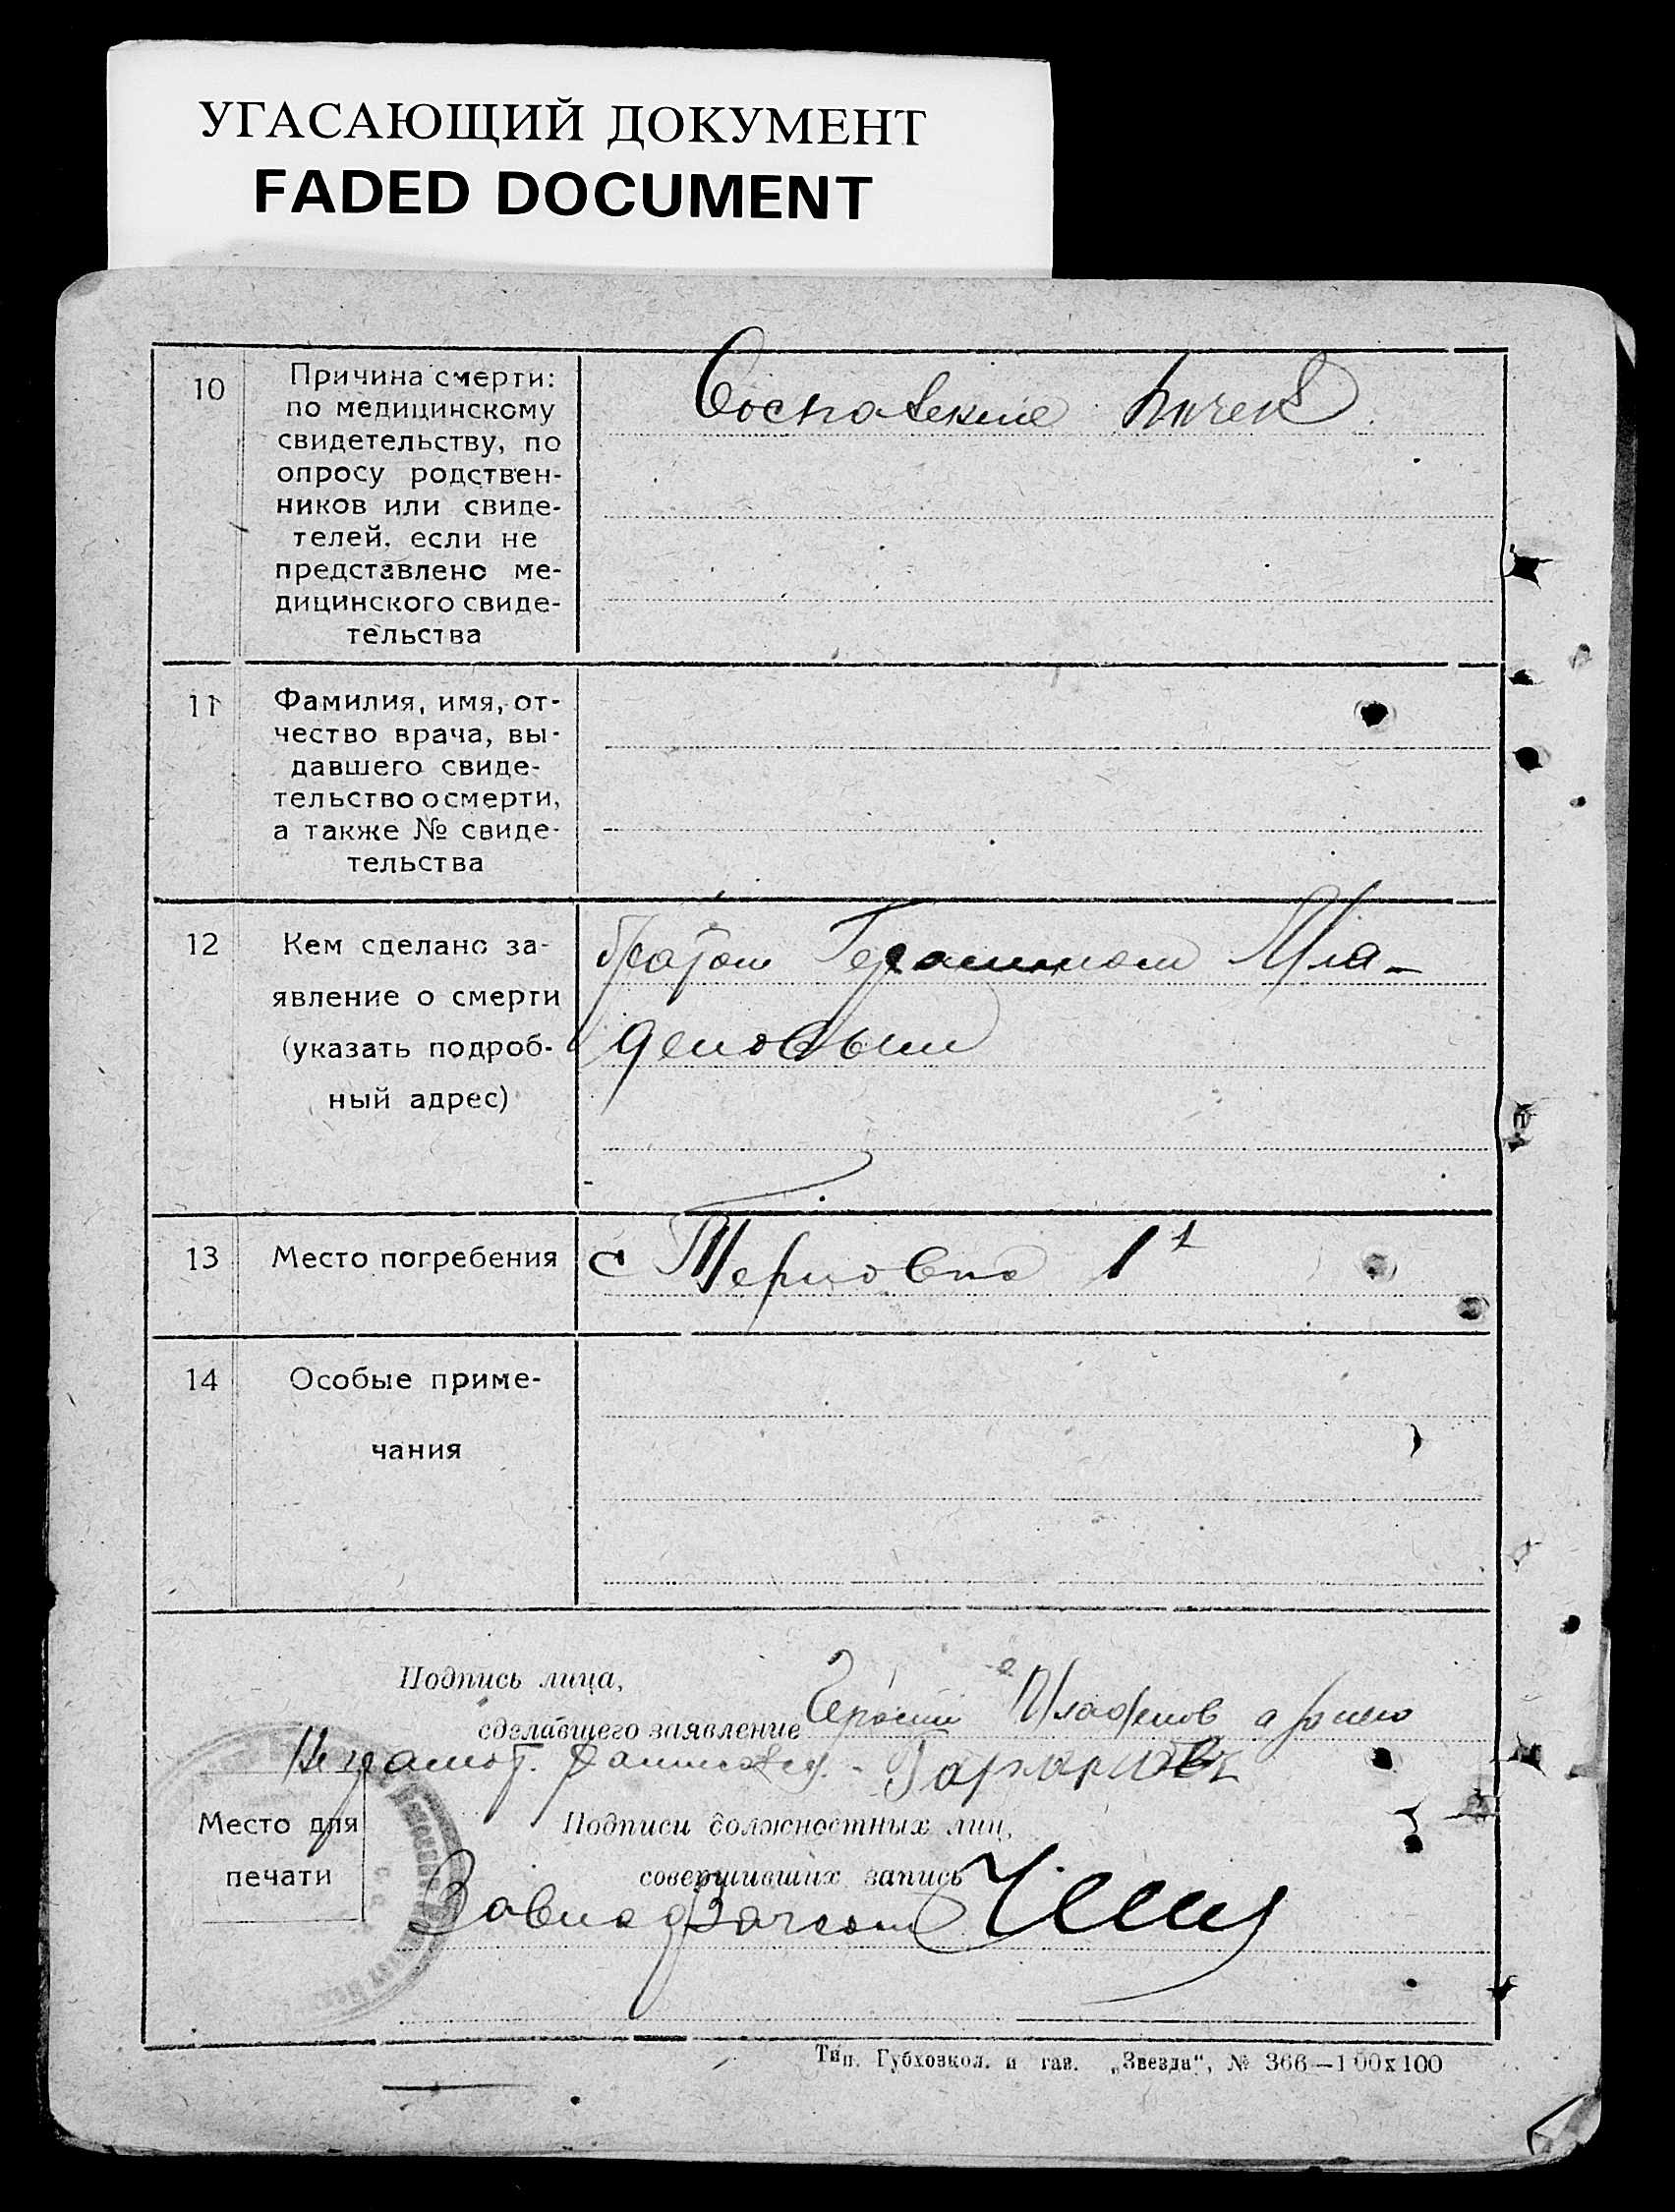 УГАСАЮЩИЙ ДОКУМЕНТ
FADED DOCUMENT
10
Причина смерти:
по медицинскому
свидетельству, по
опросу родствен-
ников или свиде-
телей, если не
представлено ме-
дицинского свиде-
тельства
11
Фамилия, имя, от-
чество врача, вы-
давшего свиде-
тельство о смерти,
а также № свиде-
тельства
12
Кем сделано за-
явление о смерти
(указать подроб-
ный адрес)
братом Герасимом Мла-
деновым
13
Место погребения
с Терновка 1
14
Особые приме-
чания
Подпись лица,
сделавшего заявление
Младенов
Неграмот.
Место для
печати
Подписи должностных лиц,
совершивших запись
Тип. Губхозкол. и газ. „Звезда“, № 366—100х100